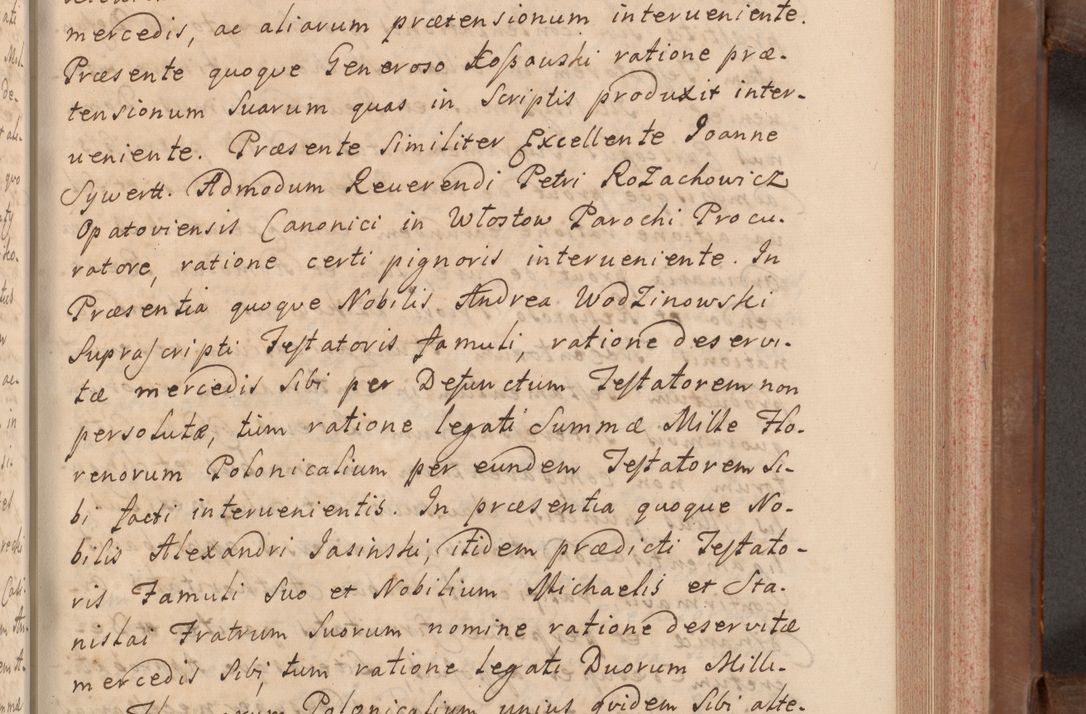 mercedis, ac aliarum prætensionum interueniente.
Præsente quoque Generoso Kossouski ratione præ-
tensionum Suarum quas in Scriptis produxit inter-
ueniente. Præsente Similiter Excellente Ioanne
Sywertt. Admodum Reuerendi Petri Rozachowicz
Opatoviensis Canonici in Włostow Parochi Procu-
ratore, ratione certi pignoris interueniente. In
Præsentia quoque Nobilis Andrea Wodzinowski
Suprascripti Testatoris famuli, ratione deservi-
tæ mercedis Sibi per Defunctum Testatorem non
persolutæ, tùm ratione legati Summæ Mille Flo-
renorum Polonicalium per eundem Testatorem Si-
bi facti interuenientis. In præsentia quoque No-
bilis Alexandri Jasinski, itidem prædicti Testato-
ris Famuli Suo et Nobilium Michaelis et Sta-
nislai Fratrum Suorum nomine ratione deservitæ
mercedis Sibi, tum ratione legati Duorum Milli-
Polonicalium unius quidem Sibi alte-